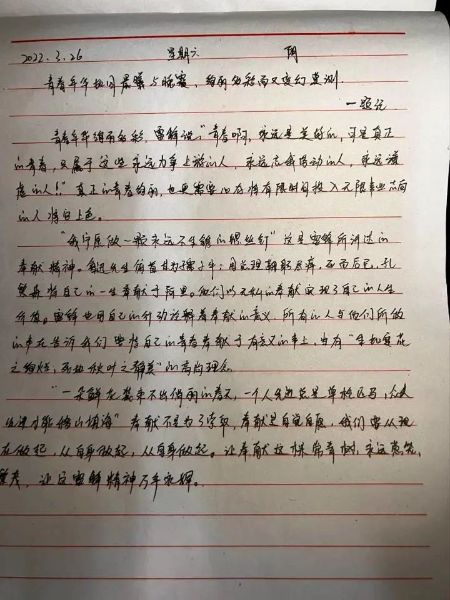 2022.3.26 星期六 阴
青春年华如同晨曦与晚霞，绚丽多彩而又变幻莫测.
—题记
青春年华绚丽多彩，雷锋说，“青春啊，永远是美的，可是真正
的青春，只属于这些永远力争上游的人，永远忘我劳动的人，永远谦
虚的人！”真正的青春绚丽，也更需要心存将有限时间投入无限事业志向
的人将自上色。
“我宁愿做一颗永远不生锈的螺丝钉”这是雷锋所讲述的
奉献精神。鲁迅先生俯首甘为孺子牛；周总理鞠躬尽瘁，死而后已，孔
繁森将自己的一生奉献于阿里。他们以无私的奉献实现了自己的人生
价值。雷锋也用自己的行动诠释着奉献的意义，所有的人与他们所做
的事在告诉我们要将自己的青春奉献于有意义的事上，也有“生机夏花
之绚烂，死如秋叶之静美”的高尚理念
“一朵鲜花装来不出绚丽的春天，一个人先进总是单枪匹马，众人
先进才能移山填海”奉献不是为了索取，奉献是自觉自愿，我们要从现
在做起，从自身做起，从自身做起。让奉献这株常青树，永远葱茏
繁秀，让这雷锋精神万年永辉。